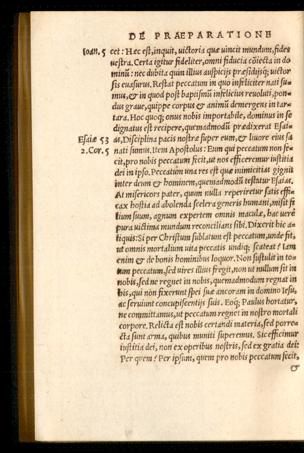 DE PRAEPARATIONE
Ioan. 5 cet: Hec est, inquit, uictoria quæ uincit mundum, fides
uestra. Certa igitur fideliter, omni fiducia cōiecta in do
minū: nec dubita quin illius auspicijs præsidijsq́; uictor
sis euasurus. Restat peccatum in quo infeliciter nati su-
mus, & in quod post baptismū infelicius reuoluti, pon-
dus graue, quippe corpus & animū demergens in tar-
tara. Hoc quoq; onus nobis importabile, dominus in se
dignatus est recipere, quemadmodū prædixerat Esai-
Esaiæ 53 as, Disciplina pacis nostræ super eum, & liuore eius sa
2. Cor. 5 nati sumus. Item Apostolus: Eum qui peccatum non fe-
cit, pro nobis peccatum fecit, ut nos efficeremur iustitia
dei in ipso. Peccatum una res est quæ inimicitias gignit
inter deum & hominem, quemadmodū testatur Esaias.
At misericors pater, quum nulla reperiretur satis effi-
cax hostia ad abolenda scelera generis humani, misit fi
lium suum, agnum expertem omnis maculæ, hac uere
pura uictima mundum reconcilians sibi. Dixerit hic a-
liquis: Si per Christum sublatum est peccatum, unde fit,
ut omnis mortalium uita peccatis undiq; scateat? tam
enim & de bonis hominibus loquor. Non sustulit in to-
tum peccatum, sed uires illius fregit, non ut nullum sit in
nobis, sed ne regnet in nobis, quemadmodum regnat in
his, qui non fixerunt spei suæ ancoram in domino Iesu,
ac seruiunt concupiscentijs suis. Eoq́; Paulus hortatur,
ne committamus, ut peccatum regnet in nostro mortali
corpore. Relicta est nobis certandi materia, sed porre-
cta sunt arma, quibus muniti superemus. Sic efficimur
iustitia dei, non ex operibus nostris, sed ex gratia dei:
Per quem? Per ipsum, quem pro nobis peccatum fecit,